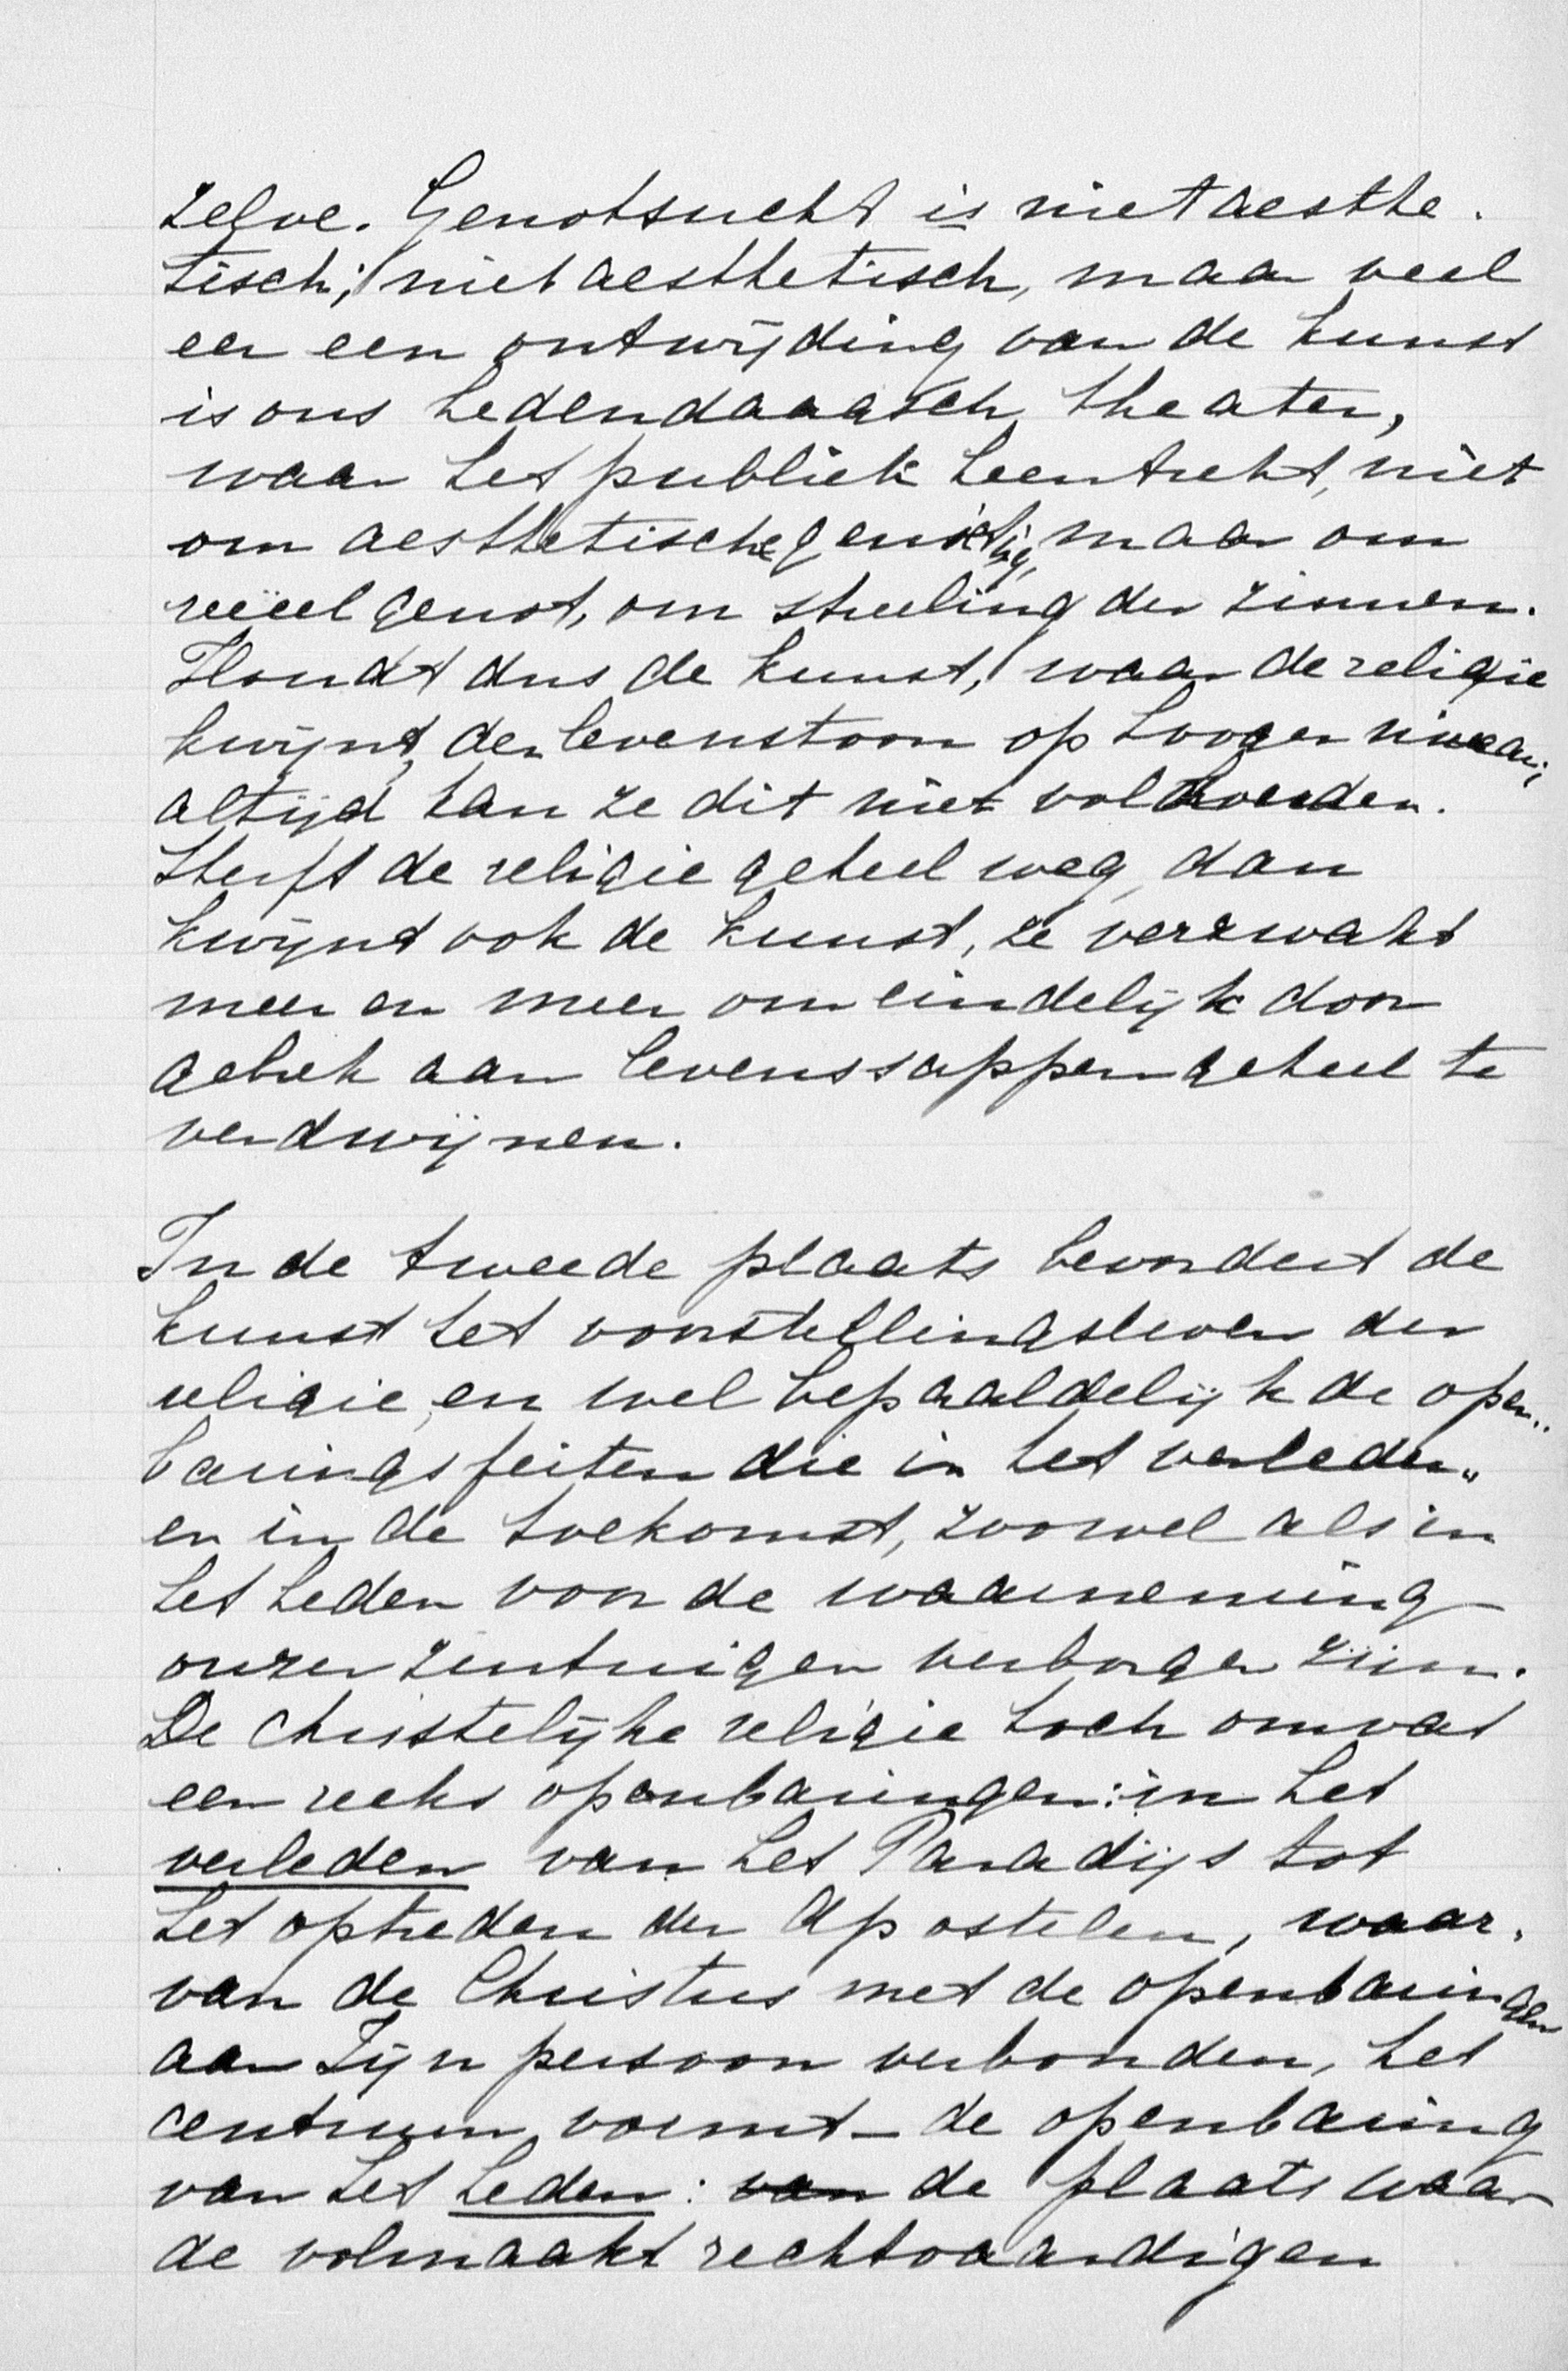 zelve. Genotsucht is niet aesthe.
tisch; niet aesthetisch, maar veel
eer een ontwijding van de kunst
is ons hedendaagsch theater,
waar het publiek heentrekt, niet
om aesthetische genieting, maar om
reëel genot, om streeling der zinnen.
Houdt dus de kunst, waar de religie
kwijnt, den levenstoon op hooger niveau;
altijd kan ze dit niet volhouden.
Sterft de religie geheel weg, dan
kwijnt ook de kunst, ze verzwakt
meer en meer om eindelijk door
gebrek aan levenssappen geheel te
verdwijnen.
In de tweede plaats bevordert de
kunst het voorstellingsleven der
religie, en wel bepaaldelijk de open..
baringsfeiten die in het verleden„
en in de toekomst, zoowel als in
het heden voor de waarneming
onzer zintuigen verborgen zijn.
De christelijke religie toch omvat
een reeks openbaringen: in het
verleden van het Paradijs tot
het optreden der Apostelen, waar.
van de Christus met de openbaringen
aan Zijn persoon verbonden, het
centrum vormt – de openbaring
van het heden: van de plaats waar
de volmaakt rechtvaardigen